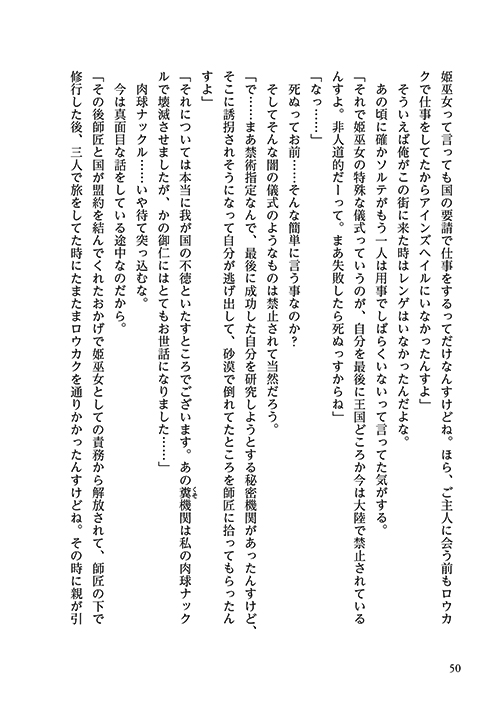 姫巫女って言っても国の要請で仕事をするってだけなんすけどね。ほら、ご主人に会う前もロウカ
クで仕事をしてたからアインズヘイルにいなかったんすよ」
そういえば俺がこの街に来た時はレンゲはいなかったんだよな。
あの頃に確かソルテがもう一人は用事でしばらくいないって言ってた気がする。
「それで姫巫女の特殊な儀式っていうのが、自分を最後に王国どころか今は大陸で禁止されている
んすよ。非人道的だーって。まあ失敗したら死ぬっすからね」
「なっ……」
死ぬってお前……そんな簡単に言う事なのか？
そしてそんな闇の儀式のようなものは禁止されて当然だろう。
「で……まあ禁術指定なんで、最後に成功した自分を研究しようとする秘密機関があったんすけど、
そこに誘拐されそうになって自分が逃げ出して、砂漠で倒れてたところを師匠に拾ってもらったん
すよ」
「それについては本当に我が国の不徳といたすところでございます。あの糞機関は私の肉球ナック
くそ
ルで壊滅させましたが、かの御仁にはとてもお世話になりました……」
肉球ナックル……いや待て突っ込むな。
今は真面目な話をしている途中なのだから。
「その後師匠と国が盟約を結んでくれたおかげで姫巫女としての責務から解放されて、師匠の下で
修行した後、三人で旅をしてた時にたまたまロウカクを通りかかったんすけどね。その時に親が引
50